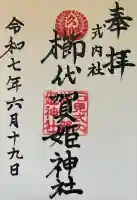 奉拝
式内社
櫛代賀姫神社
令和七年六月十九日